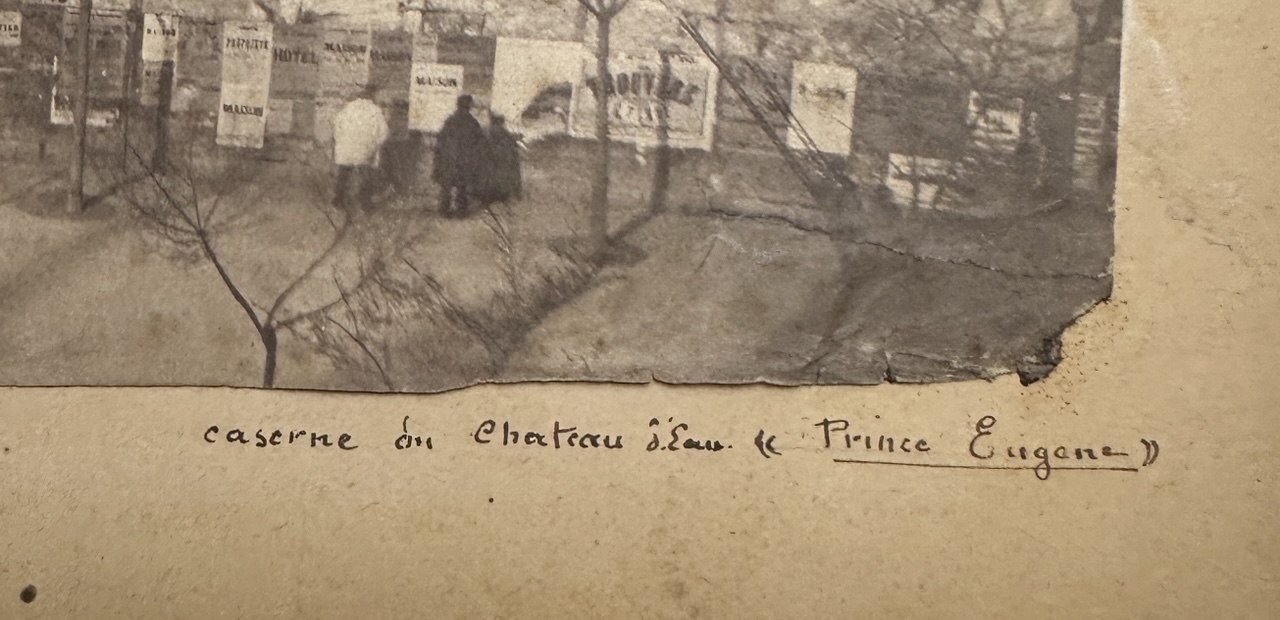 PROPRIETE
HOTEL
MAISON
MAISON
TROUVILLE
caserne du Chateau d'Eau. « Prince Eugene »